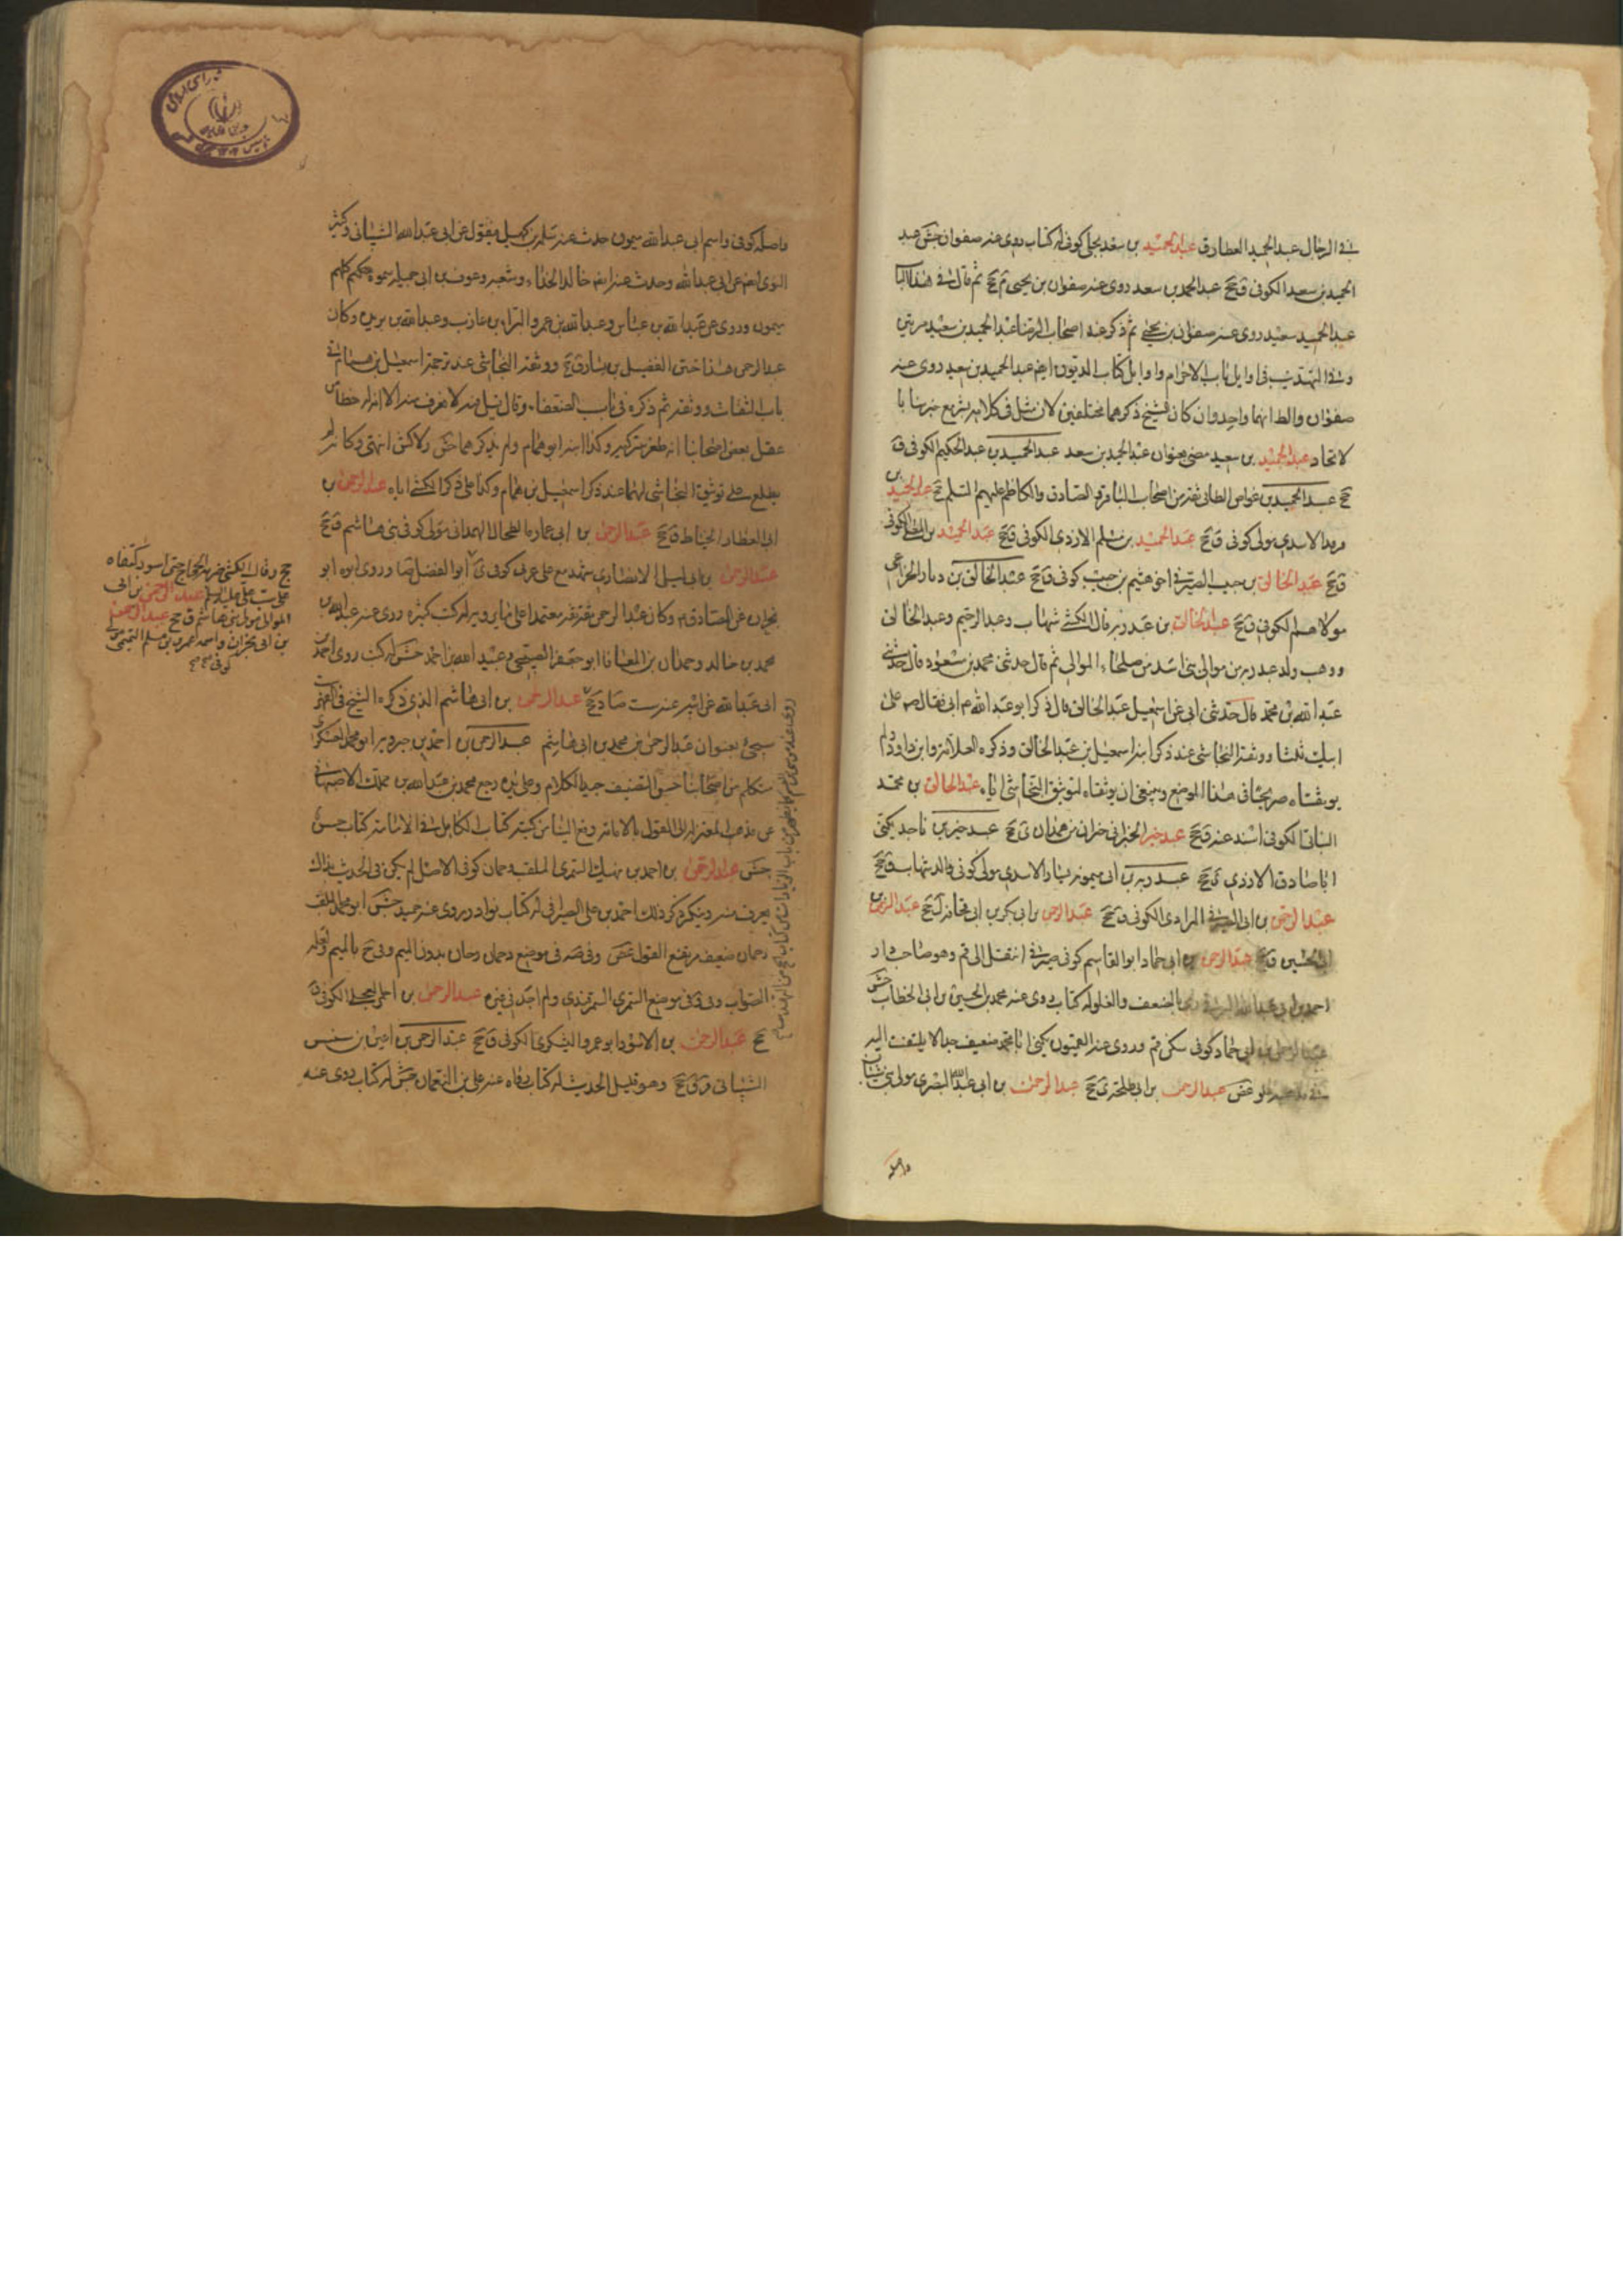 في الرجال عبد الحميد العطار ق عبد الحميد بن سعد بجلي كوفي له كتاب روى عنه صفوان جش عبد
الحميد بن سعد الكوفي ق جخ عبد الحميد بن سعد روى عنه صفوان بن يحيى م جخ ثم قال في هذا الباب
عبد الحميد سعيد روى عنه صفوان بن يحيى ثم ذكر عند اصحاب الرضا عبد الحميد بن سعيد مرتين
وفي التهذيب في اوايل باب الاحرام واوايل كتاب الديون ايضا عبد الحميد بن سعيد روى عنه
صفوان والظ انهما واحد وان كان الشيخ ذكرهما مختلفين لان مثل في كلامه
لاتحاد عبد الحميد بن سعيد مضى بعنوان عبد الحميد بن سعد عبد الحميد بن عبد الحكيم الكوفي ق
جخ عبد الحميد بن عواض الطائي ثقة من اصحاب الباقر والصادق والكاظم عليهم السلم جخ عبد الحميد بن
الاسدي مولى كوفي ق جخ عبد الحميد بن مسلم الازدي الكوفي ق جخ عبد الحميد بن الكوفي
ق جخ عبد الخالق بن حبيب الصيرفي اخو هيثم بن حبيب كوفي ق جخ عبد الخالق بن دينار الخزاعي
مولاهم الكوفي ق جخ عبد الخالق بن عبد ربه قال الكشي شهاب وعبد الرحيم وعبد الخالق
ووهب ولد عبد ربه من موالي بني اسد من صلحاء الموالي ثم قال حدثني محمد بن مسعود قال حدثني
عبد الله بن محمد قال حدثني ابي عن اسمعيل عبد الخالق قال ذكر ابو عبد الله م ابي فقال صلى على
ابيك ثلثا ووثقه النجاشي عند ذكر ابنه اسمعيل بن عبد الخالق وذكره العلامة وابن داود ولم
يوثقاه صريحا في هذا الموضع وينبغي ان يوثقاه لتوثيق النجاشي اياه عبد الخالق بن محمد
البناني الكوفي اسند عنه ق جخ عبد خير الخيراني خيران من همدان ي جخ عبد خير بن ناجد يكنى
ابا صادق الازدي ي جخ عبد ربه بن ابي ميمونة يسار الاسدي مولى كوفي والد شهاب ق جخ
عبد الرحمن بن ابي المرادي الكوفي ق جخ عبد الرحمن بن ابي بكر بن ابي قحافة ل جخ عبد الرحمن بن
ابي الحسين ق جخ عبد الرحمن بن ابي حماد ابو القاسم كوفي صيرفي انتقل الى قم وهو صاحب دار
احمد بن ابي عبد الله البرقي رمي بالضعف والغلو له كتاب روى عنه محمد بن الحسين بن ابي الخطاب جش
عبد الرحمن بن ابي حماد كوفي سكن قم وروى عنه القميون يكنى ابا محمد ضعيف جدا لا يلتفت اليه
في مذهبه غلو غض عبد الرحمن بن ابي طلحة ي جخ عبد الرحمن بن ابي عبد الله البصري مولى بني شيبان
واصله
واصله كوفي واسم ابي عبد الله ميمون حدث عنه سلمة بن كهيل فيقول عن ابي عبد الله الشيباني وكثير
النوى ايضا عن ابي عبد الله وحدث عنه ايضا خالد الحذاء وشعبة وعوف بن ابي جميلة سموه كلهم
ميمون وروى عن عبد الله بن عباس وعبد الله بن عمر والبراء بن عازب وعبد الله بن بريدة وكان
عبد الرحمن هذا ختن الفضيل بن يسار ق جخ ووثقه النجاشي عند ترجمة اسمعيل بن همام في
باب الثقات ووثقه ثم ذكره في باب الضعفاء وقال قيل فيه لا اعرف منه الا
بعض اصحابنا وكذا ابنه ابو همام ولم يذكرهما جش ولا كش انتهى وكانه لم
يطلع على توثيق النجاشي لهما عند ذكر اسمعيل بن همام وكذا على ذكر الكشي اياه عبد الرحمن بن
ابي العطار الخياط ق جخ عبد الرحمن بن ابي عمارة الهمداني مولى كوفي بني هاشم ق جخ
عبد الرحمن بن ابي ليلى الانصاري شهد مع علي عربي كوفي ي ابو الفضل وروى ابوه ابو
نجران عن الصادق م وكان عبد الرحمن ثقة ثقة معتمدا على ما يرويه له كتب كثيرة روى عنه عبد الله بن
محمد بن خالد وحمدان بن المعافا ابو جعفر الصبيحي وعبيد الله بن احمد جش له كتب روى احمد بن
ابي عبد الله عن ابيه عنه ست ضا د جخ عبد الرحمن بن ابي هاشم الذي ذكره الشيخ في الفهرست
سيجئ بعنوان عبد الرحمن بن محمد بن ابي هاشم عبد الرحمن بن احمد بن جبرويه ابو محمد العسكري
متكلم من اصحابنا حسن التصنيف جيد الكلام وعلى يده رجع محمد بن عبد الله بن مملك الاصبهاني
عن مذهب المعتزلة الى القول بالامامة وقع الينا من كتبه كتاب الكامل في الامامة كتاب حسن
جش عبد الرحمن بن احمد بن نهيك السمري الملقب دحمان كوفي الاصل لم يكن في الحديث بذاك
يعرف منه وينكر ذكر ذلك احمد بن علي السيرافي له كتاب نوادر روى عنه حميد جش ابو محمد الملقب
دحمان ضعيف مرتفع القول غض وفي صه في موضع دحمان دحان بدون الميم وفي ح بالميم ولعله
الصواب وفي في موضع السمري السمرقندي ولم اجد في غيره عبد الرحمن بن البجلي الكوفي ق
جخ عبد الرحمن بن الاسود ابو عمرو اليشكري الكوفي ق جخ عبد الرحمن بن اعين بن سنسن
الشيباني قر ق جخ وهو قليل الحديث له كتاب رواه عنه علي بن النعمان جش له كتاب روى عنه
جخ وقال الكشي ضربه الحجاج حتى اسود كتفاه
على سب علي عليه السلم عبد الرحمن بن ابي
الموالي مولى بني هاشم ق جخ عبد الرحمن
بن ابي نجران واسمه عمرو بن مسلم التميمي مولى
كوفي